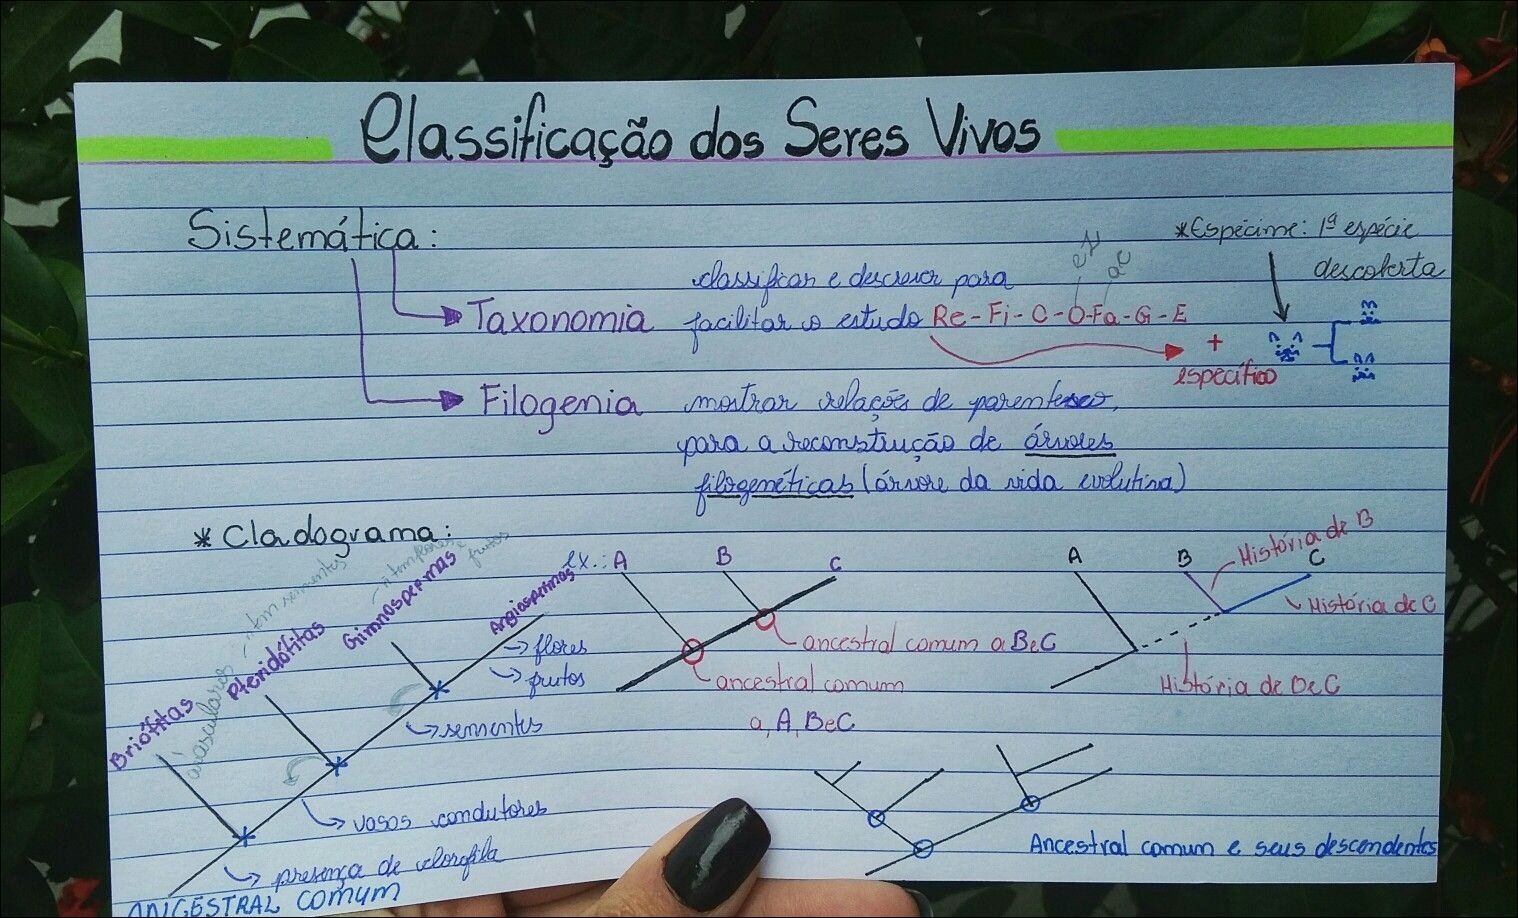 Classificação dos Seres Vivos
Sistemática:
*Espécime: 1ª espécie
descoberta
Taxonomia
classificar e descrever para
facilitar o estudo Re - Fi - C - O - Fa - G - E
+
específico
Filogenia
mostrar relações de parentesco,
para a reconstrução de árvores
filogenéticas (árvore da vida evolutiva)
* Cladograma:
Briófitas
avasculares
Pteridófitas
ñ tem sementes
Gimnospermas
ñ tem flores e frutos
Angiospermas
flores
frutos
sementes
vasos condutores
presença de clorofila
ANCESTRAL COMUM
ex.: A B C
ancestral comum a BeC
ancestral comum
a, A, BeC
A B C
História de B
História de C
História de BeC
Ancestral comum e seus descendentes